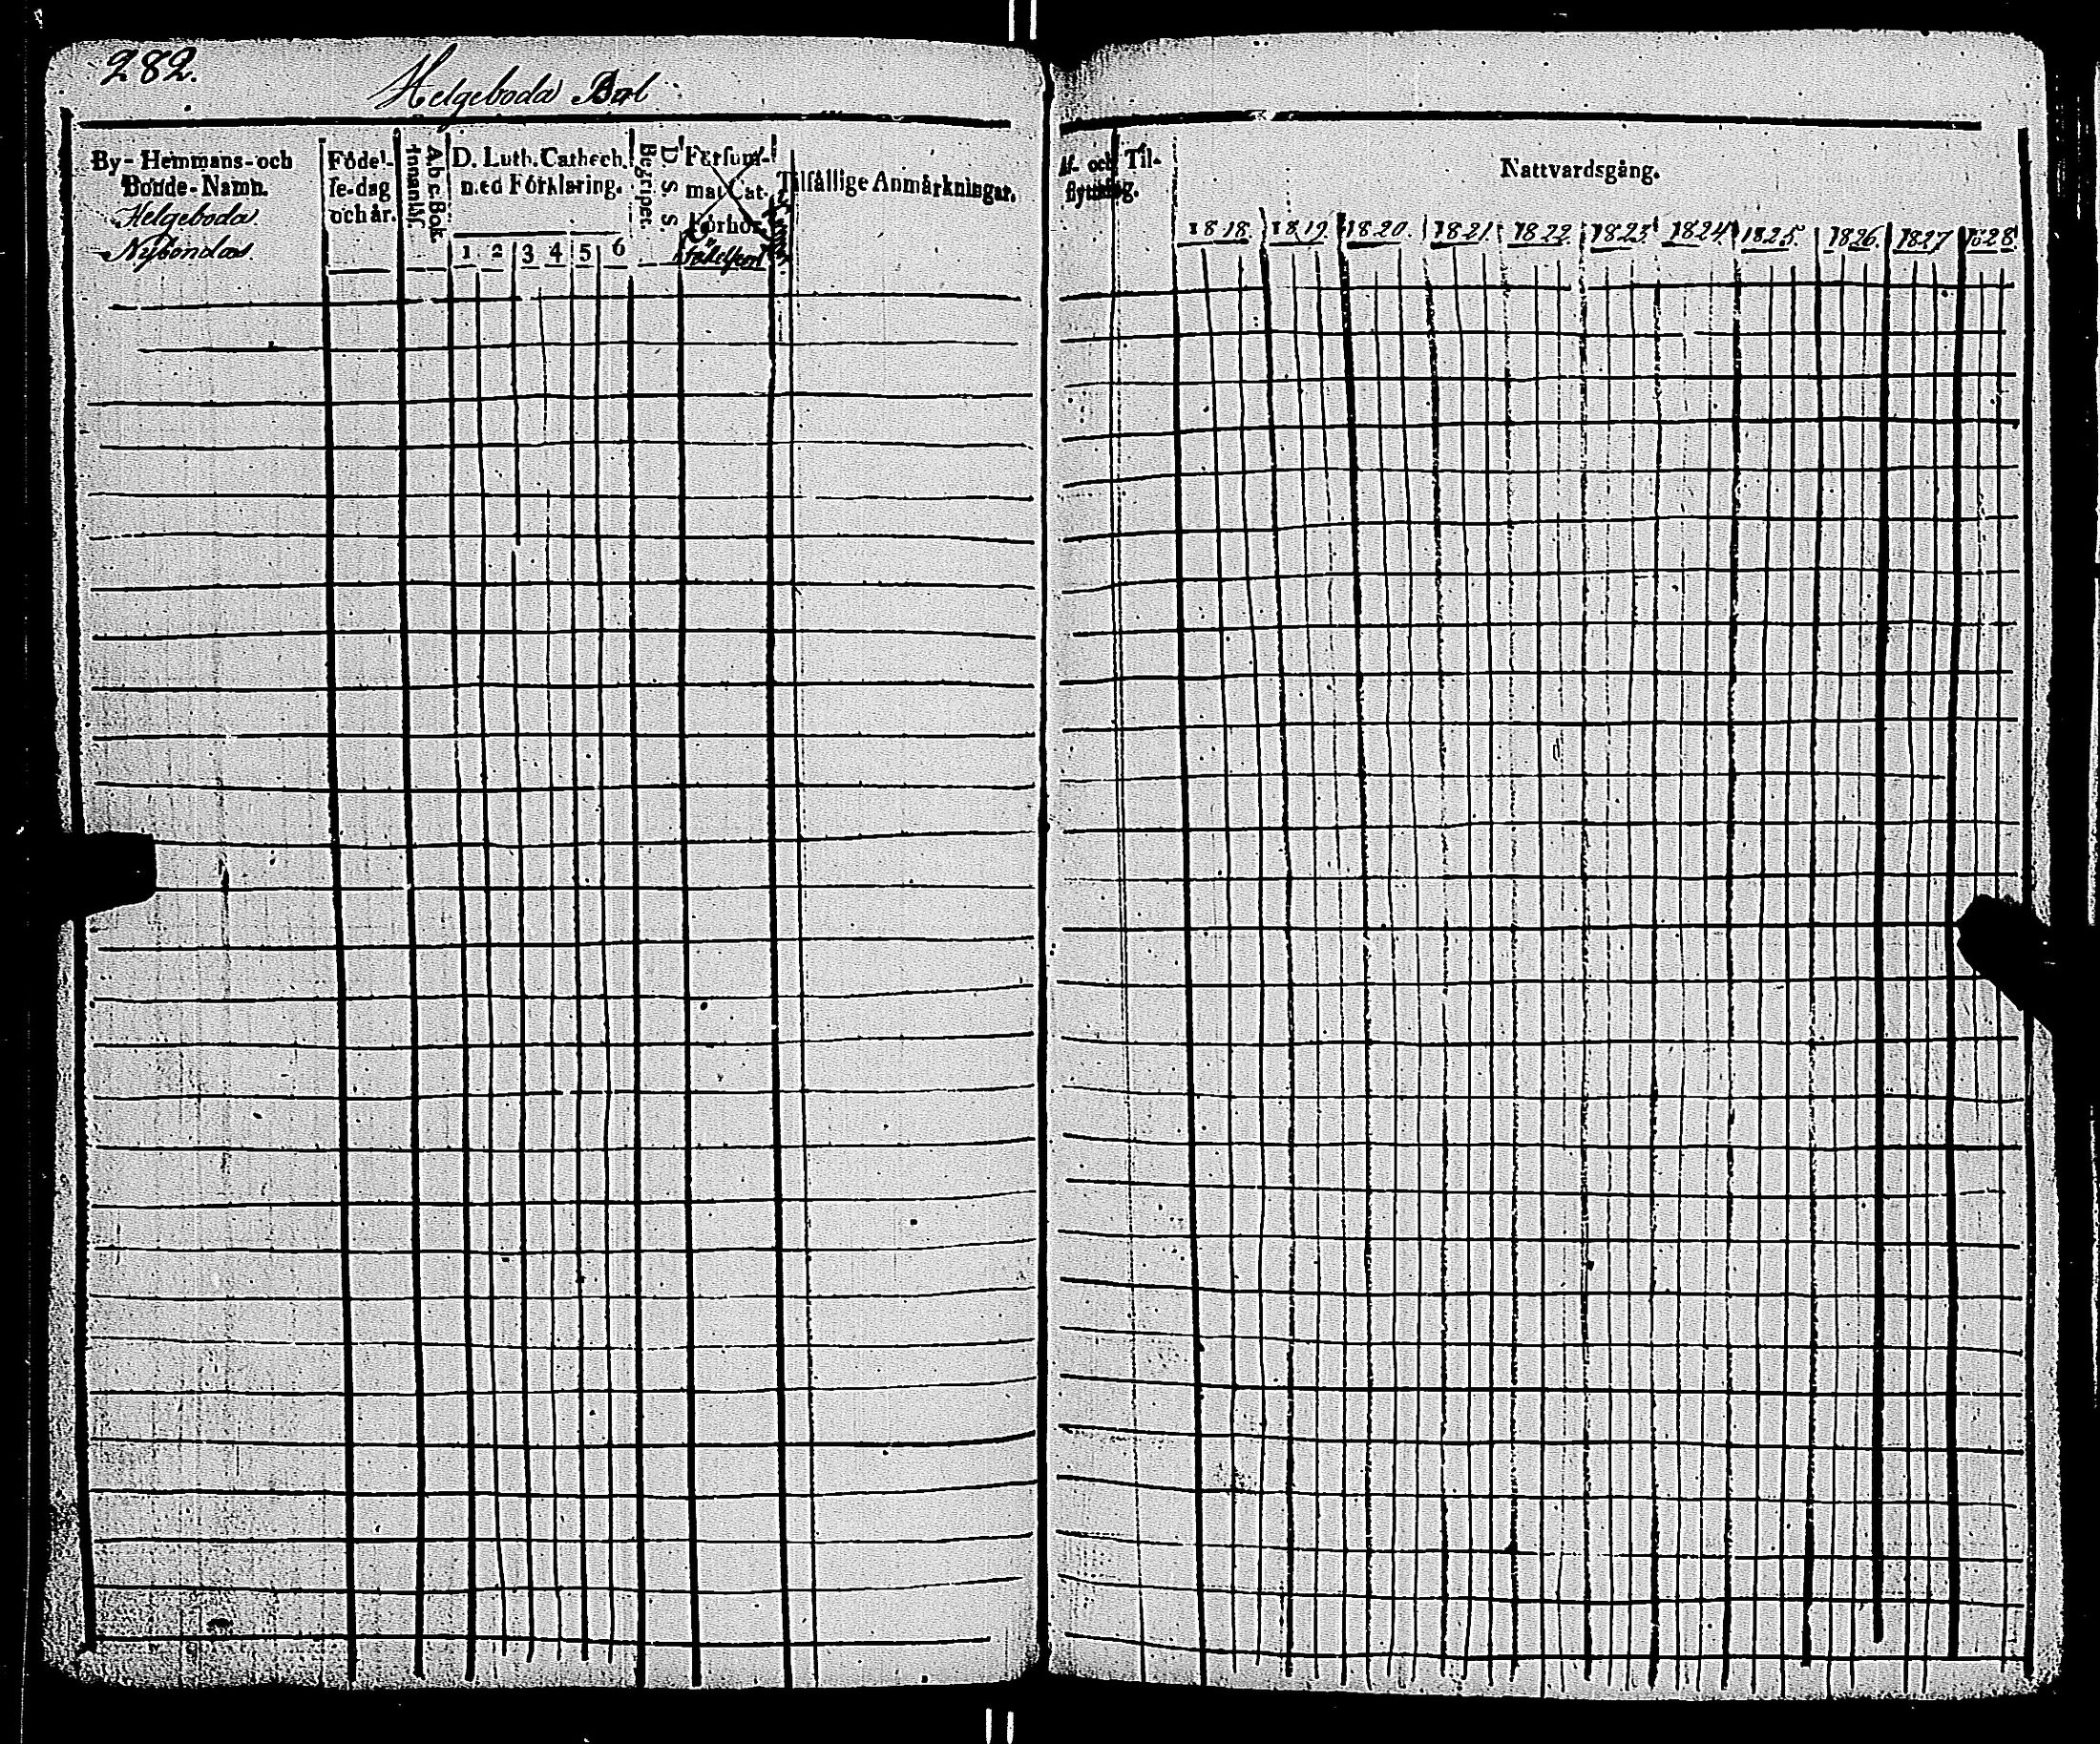 282.
Helgeboda Bol
By- Hemmans- och
Bonde- Namn.
Helgeboda
Nybondas
Födel-
se-dag
och år.
A b c Bok
Innantil.
D. Luth. Cathech.
med Förklaring.
1 2 3 4 5 6
Begripet.
D. S. S.
Försum-
mat Cat.
Förhör
Tilfällige Anmärkningar.
Af- och Til-
flyttning.
Nattvardsgång.
1818. 1819. 1820. 1821. 1822. 1823. 1824. 1825. 1826. 1827 1828.